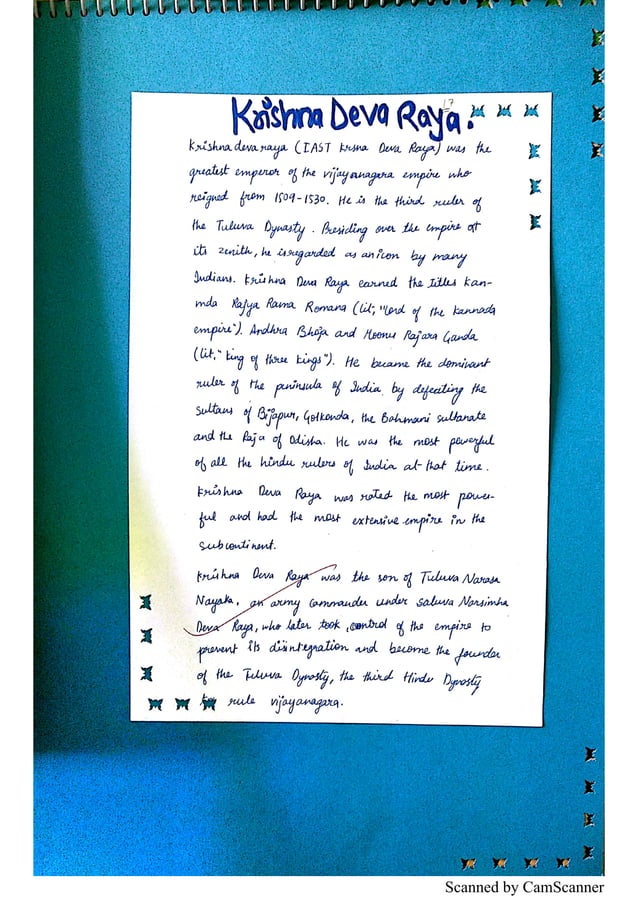 Krishna Deva Raya.
17
Krishna deva raya (IAST Krsna Deva Raya) was the
greatest emperor of the vijayanagara empire who
reigned from 1509-1530. He is the third ruler of
the Tuluva Dynasty. Presiding over the empire at
its zenith, he is regarded as an icon by many
Indians. Krishna Deva Raya earned the Titles Kan-
nda Rajya Rama Romana (lit; "Lord of the Kannada
empire"). Andhra Bhoja and Mooru Rajara Ganda
(lit, "king of three kings"). He became the dominant
ruler of the peninsula of India by defeating the
sultans of Bijapur, Golkonda, the Bahmani sultanate
and the Raja of Odisha. He was the most powerful
of all the hindu rulers of India at that time.
Krishna Deva Raya was rated the most power-
ful and had the most extensive empire in the
subcontinent.
Krishna Deva Raya was the son of Tuluva Narasa
Nayaka, an army commander under saluva Narsimha
Deva Raya, who later took control of the empire to
prevent its disintegration and become the founder
of the Tuluva Dynasty, the third Hindu Dynasty
to rule vijayanagara.
Scanned by CamScanner